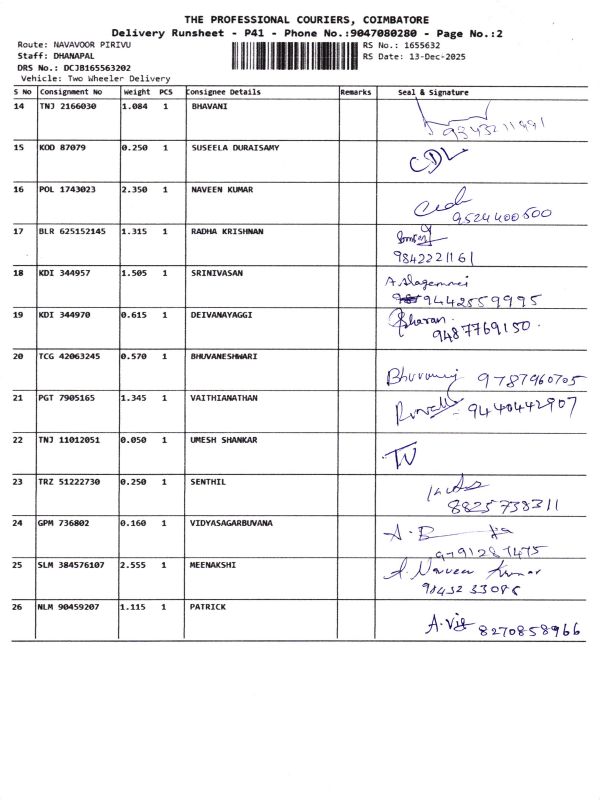 THE PROFESSIONAL COURIERS, COIMBATORE
Delivery Runsheet - P41 - Phone No.:9047080280 - Page No.:2
Route: NAVAVOOR PIRIVU RS No.: 1655632
Staff: DHANAPAL RS Date: 13-Dec-2025
DRS No.: DCJB165563202
Vehicle: Two Wheeler Delivery
S No Consignment No Weight PCS Consignee Details Remarks Seal & Signature
14 TNJ 2166030 1.084 1 BHAVANI
9843211991
15 KOD 87079 0.250 1 SUSEELA DURAISAMY CDL
16 POL 1743023 2.350 1 NAVEEN KUMAR
9524400500
17 BLR 625152145 1.315 1 RADHA KRISHNAN
9842221161
18 KDI 344957 1.505 1 SRINIVASAN
9442559995
19 KDI 344970 0.615 1 DEIVANAYAGGI
9487769150.
20 TCG 42063245 0.570 1 BHUVANESHWARI
9787960705
21 PGT 7905165 1.345 1 VAITHIANATHAN
9440442907
22 TNJ 11012051 0.050 1 UMESH SHANKAR
23 TRZ 51222730 0.250 1 SENTHIL
8825738311
24 GPM 736802 0.160 1 VIDYASAGARBUVANA
9791287475
25 SLM 384576107 2.555 1 MEENAKSHI A. Naveen Kumar
9843233086
26 NLM 90459207 1.115 1 PATRICK
8270858966